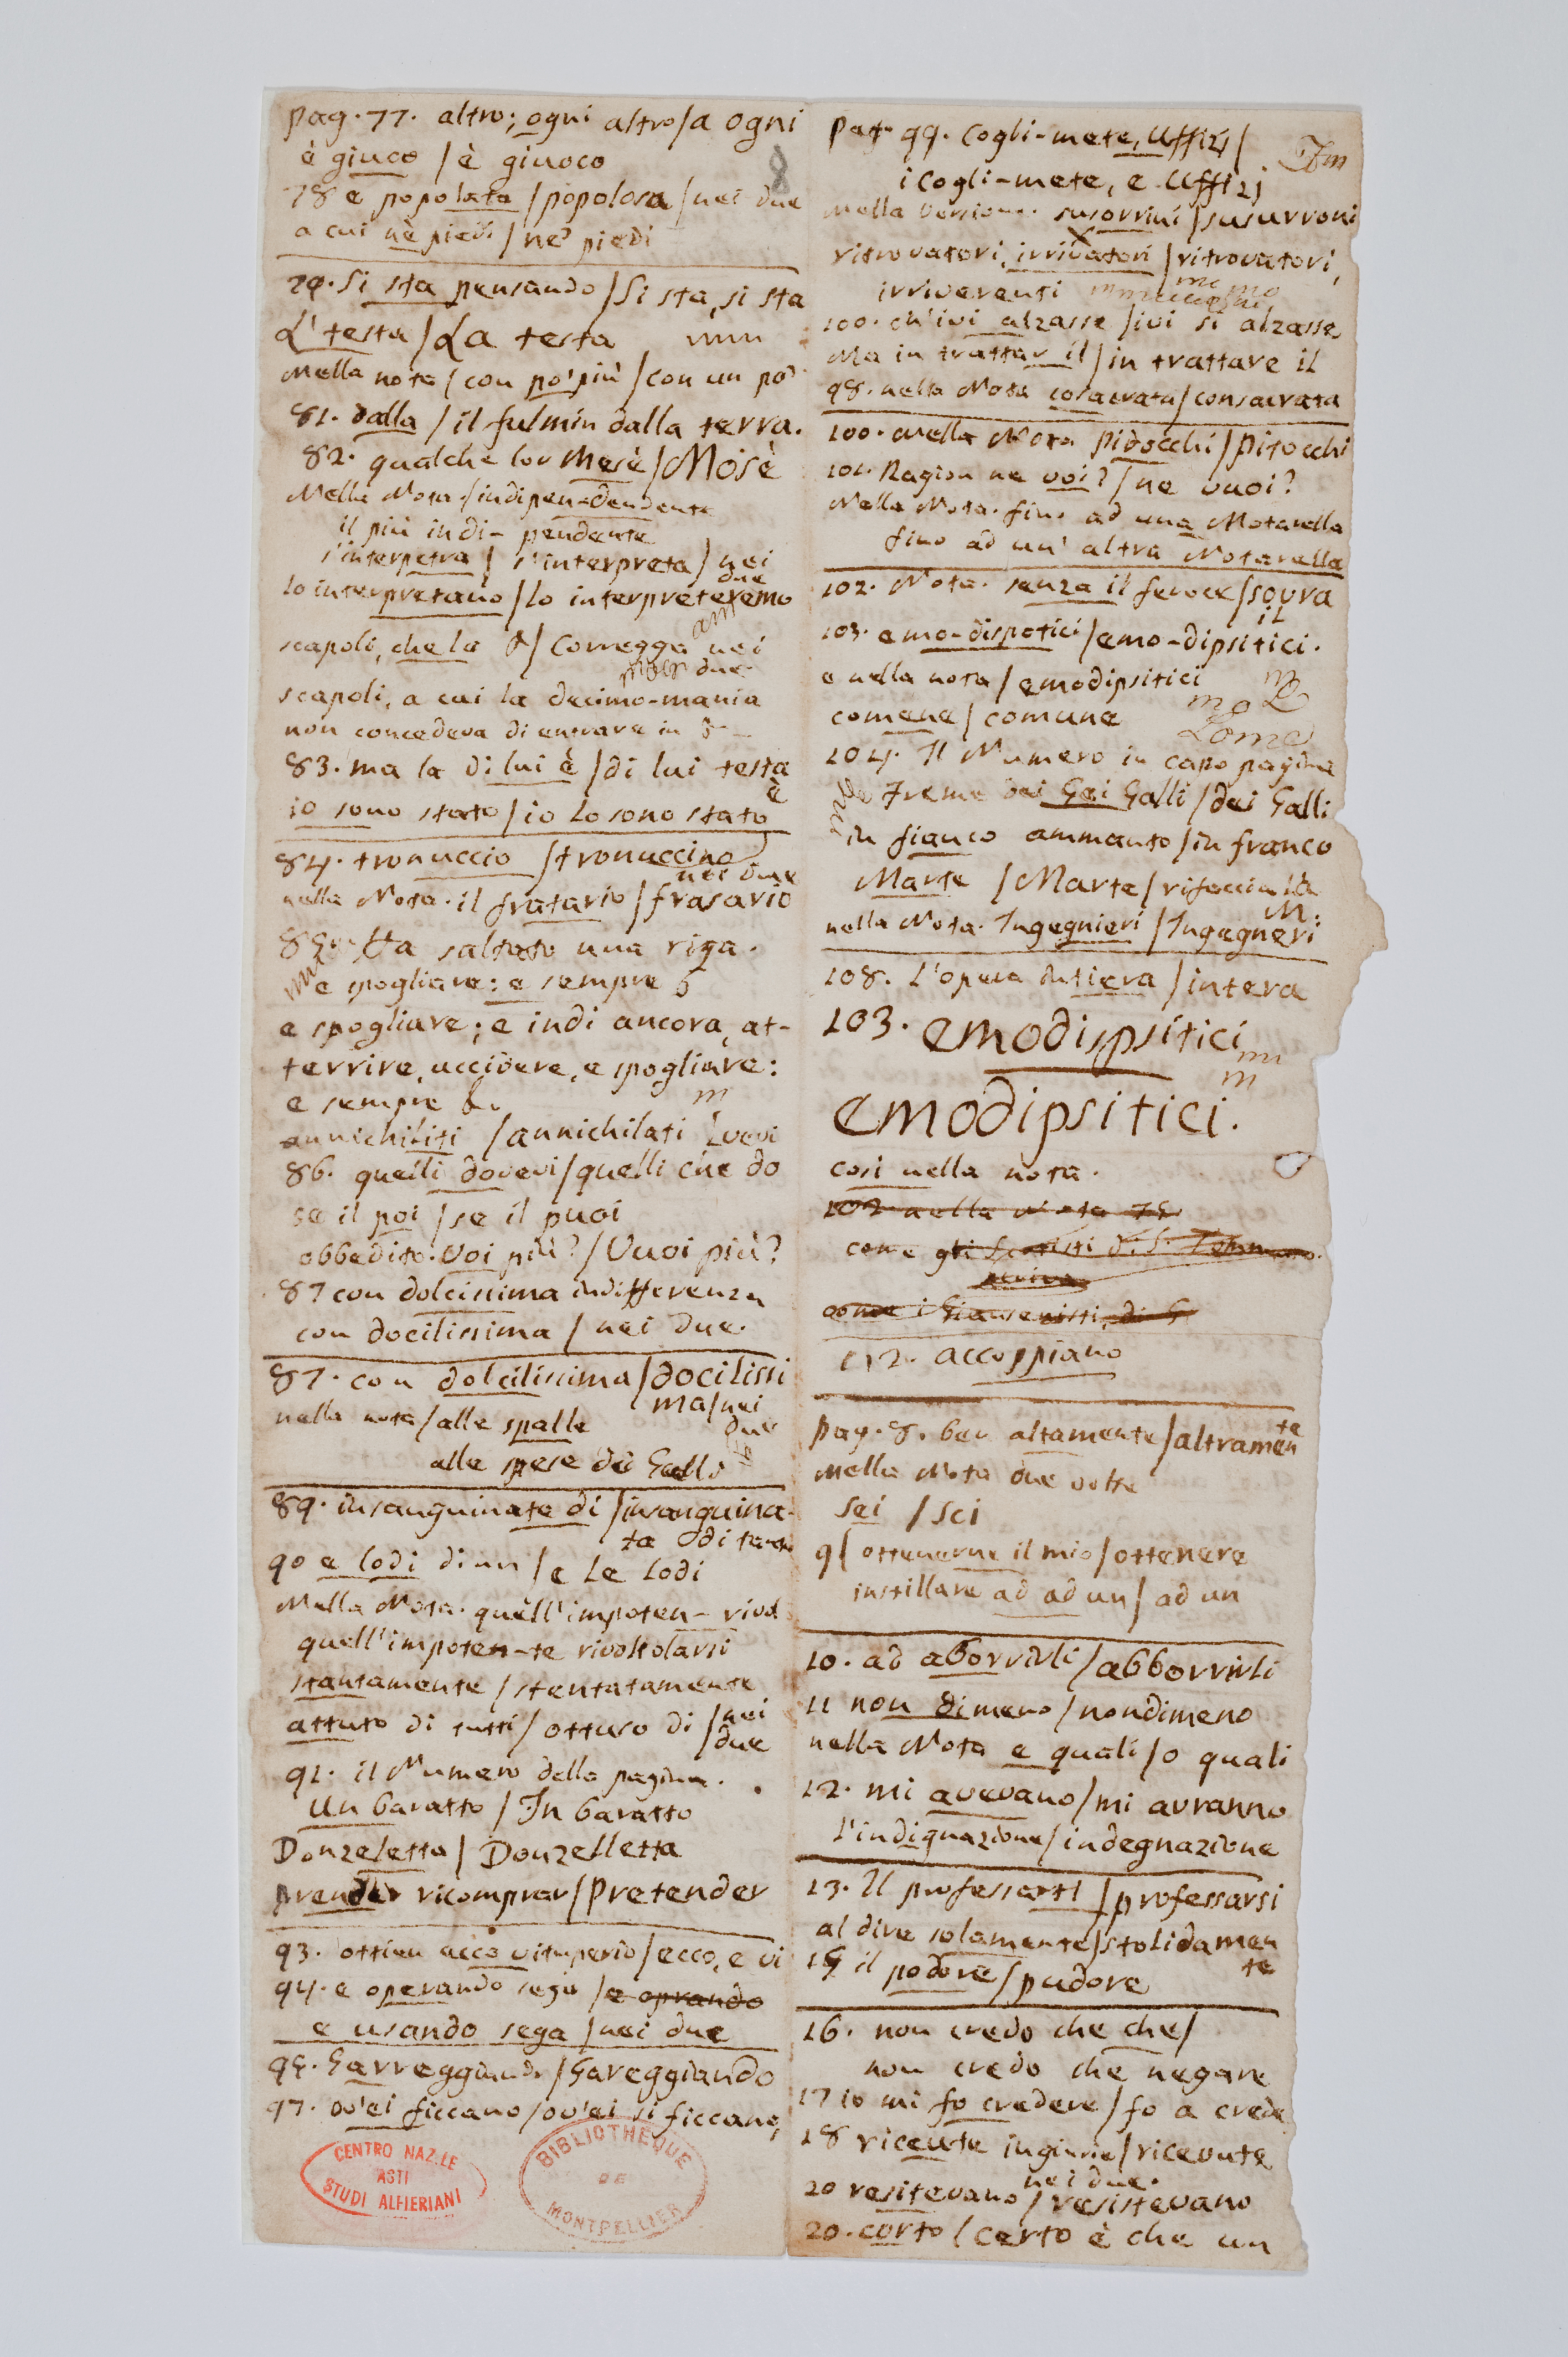 pag. 77. altro; ogni altro/a ogni
è giuco / è giuoco
8
78 e popolata / popolosa / nei due
a cui nè piedi / ne' piedi
79. Si sta pensando / Si sta, si sta
L' testa / La testa
Nella nota / con po' più / con un po'
81. dalla / il fulmin dalla terra.
82. qualche lor Mesè / Mosè
Nella Nota. / indipen-dendente
il più indi-pendente
s'interpetra / s'interpreta / nei due
lo interpretano / lo interpreteremo
scapoli, che la & / Corregga nei due
scapoli, a cui la decimo-mania
non concedeva di entrare in &
83. ma la di lui è / di lui testa è
io sono stato / io lo sono stato
84. tronuccio / tronuccino
nei due
nella Nota. il fratario / frasario
85. Ha saltato una riga.
e spogliare: e sempre &
e spogliare; e indi ancora, at-
terrire, uccidere, e spogliare:
e sempre &.
annichiliti / annichilati
86. quelli dovevi / quelli che do
vevi
se il poi / se il puoi
obbedito. Voi più? / Vuoi più?
87 con dolcissima indifferenza
con docilissima / nei due.
87. con dolcilissima / docilissi
ma / nei due
nella nota / alle spalle
alle spese dei Galli
89. insanguinate di / insanguina-
ta di
90 e lodi di un / e le lodi
Nella Nota. quell'impoten- rivol
quell'impoten-te rivoltolarsi
stantamente / stentatamente
attuto di tutti / ottuso di / nei due
91. il Numero della pagina.
Un baratto / In baratto
Donzeletta / Donzelletta
prender ricomprar / Pretender
93. ottien acco vituperio / ecco, e vi
94. e operando sega / e oprando
e usando sega / nei due
95. Garreggiando / Gareggiando
97. ov'ei ficcano / ov'ei si ficcano,
CENTRO NAZ.LE
ASTI
STUDI ALFIERIANI
BIBLIOTHÈQUE
DE
MONTPELLIER
Pag. 99. Cogli-mete, Uffizj /
i Cogli-mete, e Uffizj
Nella Versione. susorrini / susurroni
ritrovatori, irrivatori / ritrovatori,
irriverenti
100. ch'ivi alzasse / ivi si alzasse
Ma in trattar il / in trattare il
98. nella Nota cosacrata / consacrata
100. Nella Nota Pidocchi / Pitocchi
101. Ragion ne voi? / ne vuoi?
Nella Nota. fino ad una Notarella
fino ad un' altra Notarella
102. Nota. senza il feroce / sovra
il
103. emo-dispotici / emo-dipsitici.
e nella nota / emodipsitici
comene / comune
104. Il Numero in capo pagina
Freme dei Gai Galli / dei Galli
in fianco ammanto / in franco
Marte / Marte / rifaccia la
M:
nella Nota. Ingegnieri / Ingegneri
108. L'opera intiera / intera
103. emodispsitici
emodipsitici.
così nella nota.
102 nella nota 75
come gli
come i Giansenisti, di S
112. accoppiano
pag. 8. ben altamente / altramen
te
Nella Nota due volte
sei / sci
9 / ottenerne il mio / ottenere
instillare ad ad un / ad un
10. ad aborrirli / abborrirli
11 non dimeno / nondimeno
nella Nota e quali / o quali
12. mi avevano / mi avranno
l'indignazione / indegnazione
13. Il professarsi / professarsi
al dire solamente / stolidamen
te
15 il podore / pudore
16. non credo che che /
non credo che negare
17 io mi fo credere / fo a crede
18 riceute ingiurie / ricevute
nei due.
20 resitevano / resistevano
20. corto / certo è che un